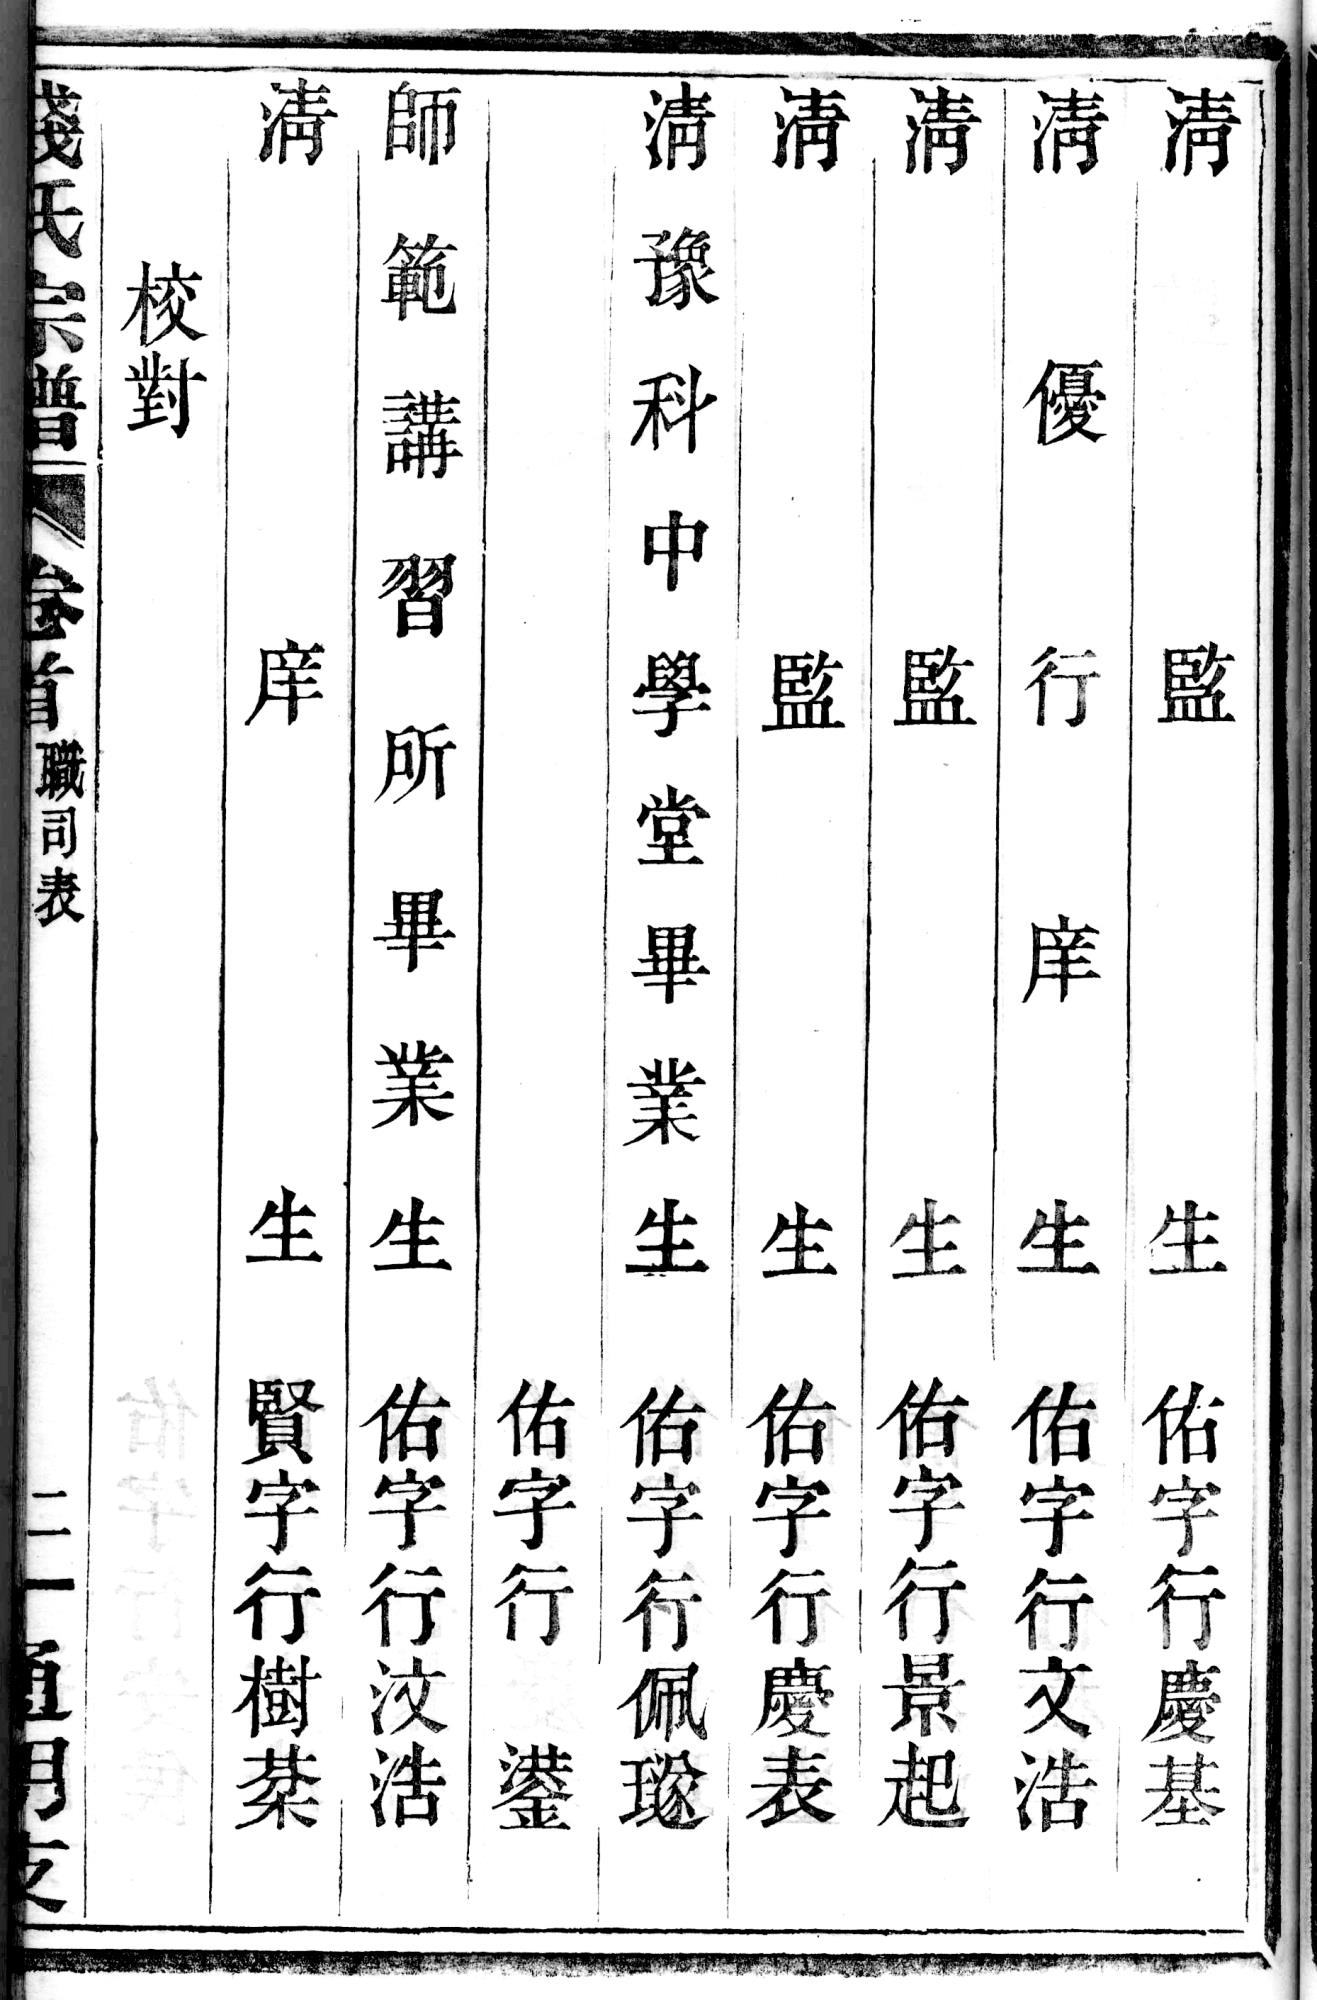 清監生佑字行慶基
清優行庠生佑字行文浩
清監生佑字行景起
清監生佑字行慶表
清豫科中學堂畢業生佑字行佩璲
佑字行鎣
師範講習所畢業生佑字行汶浩
清庠生賢字行樹棻
校對
錢氏宗譜 卷首 職司表 二 通明支